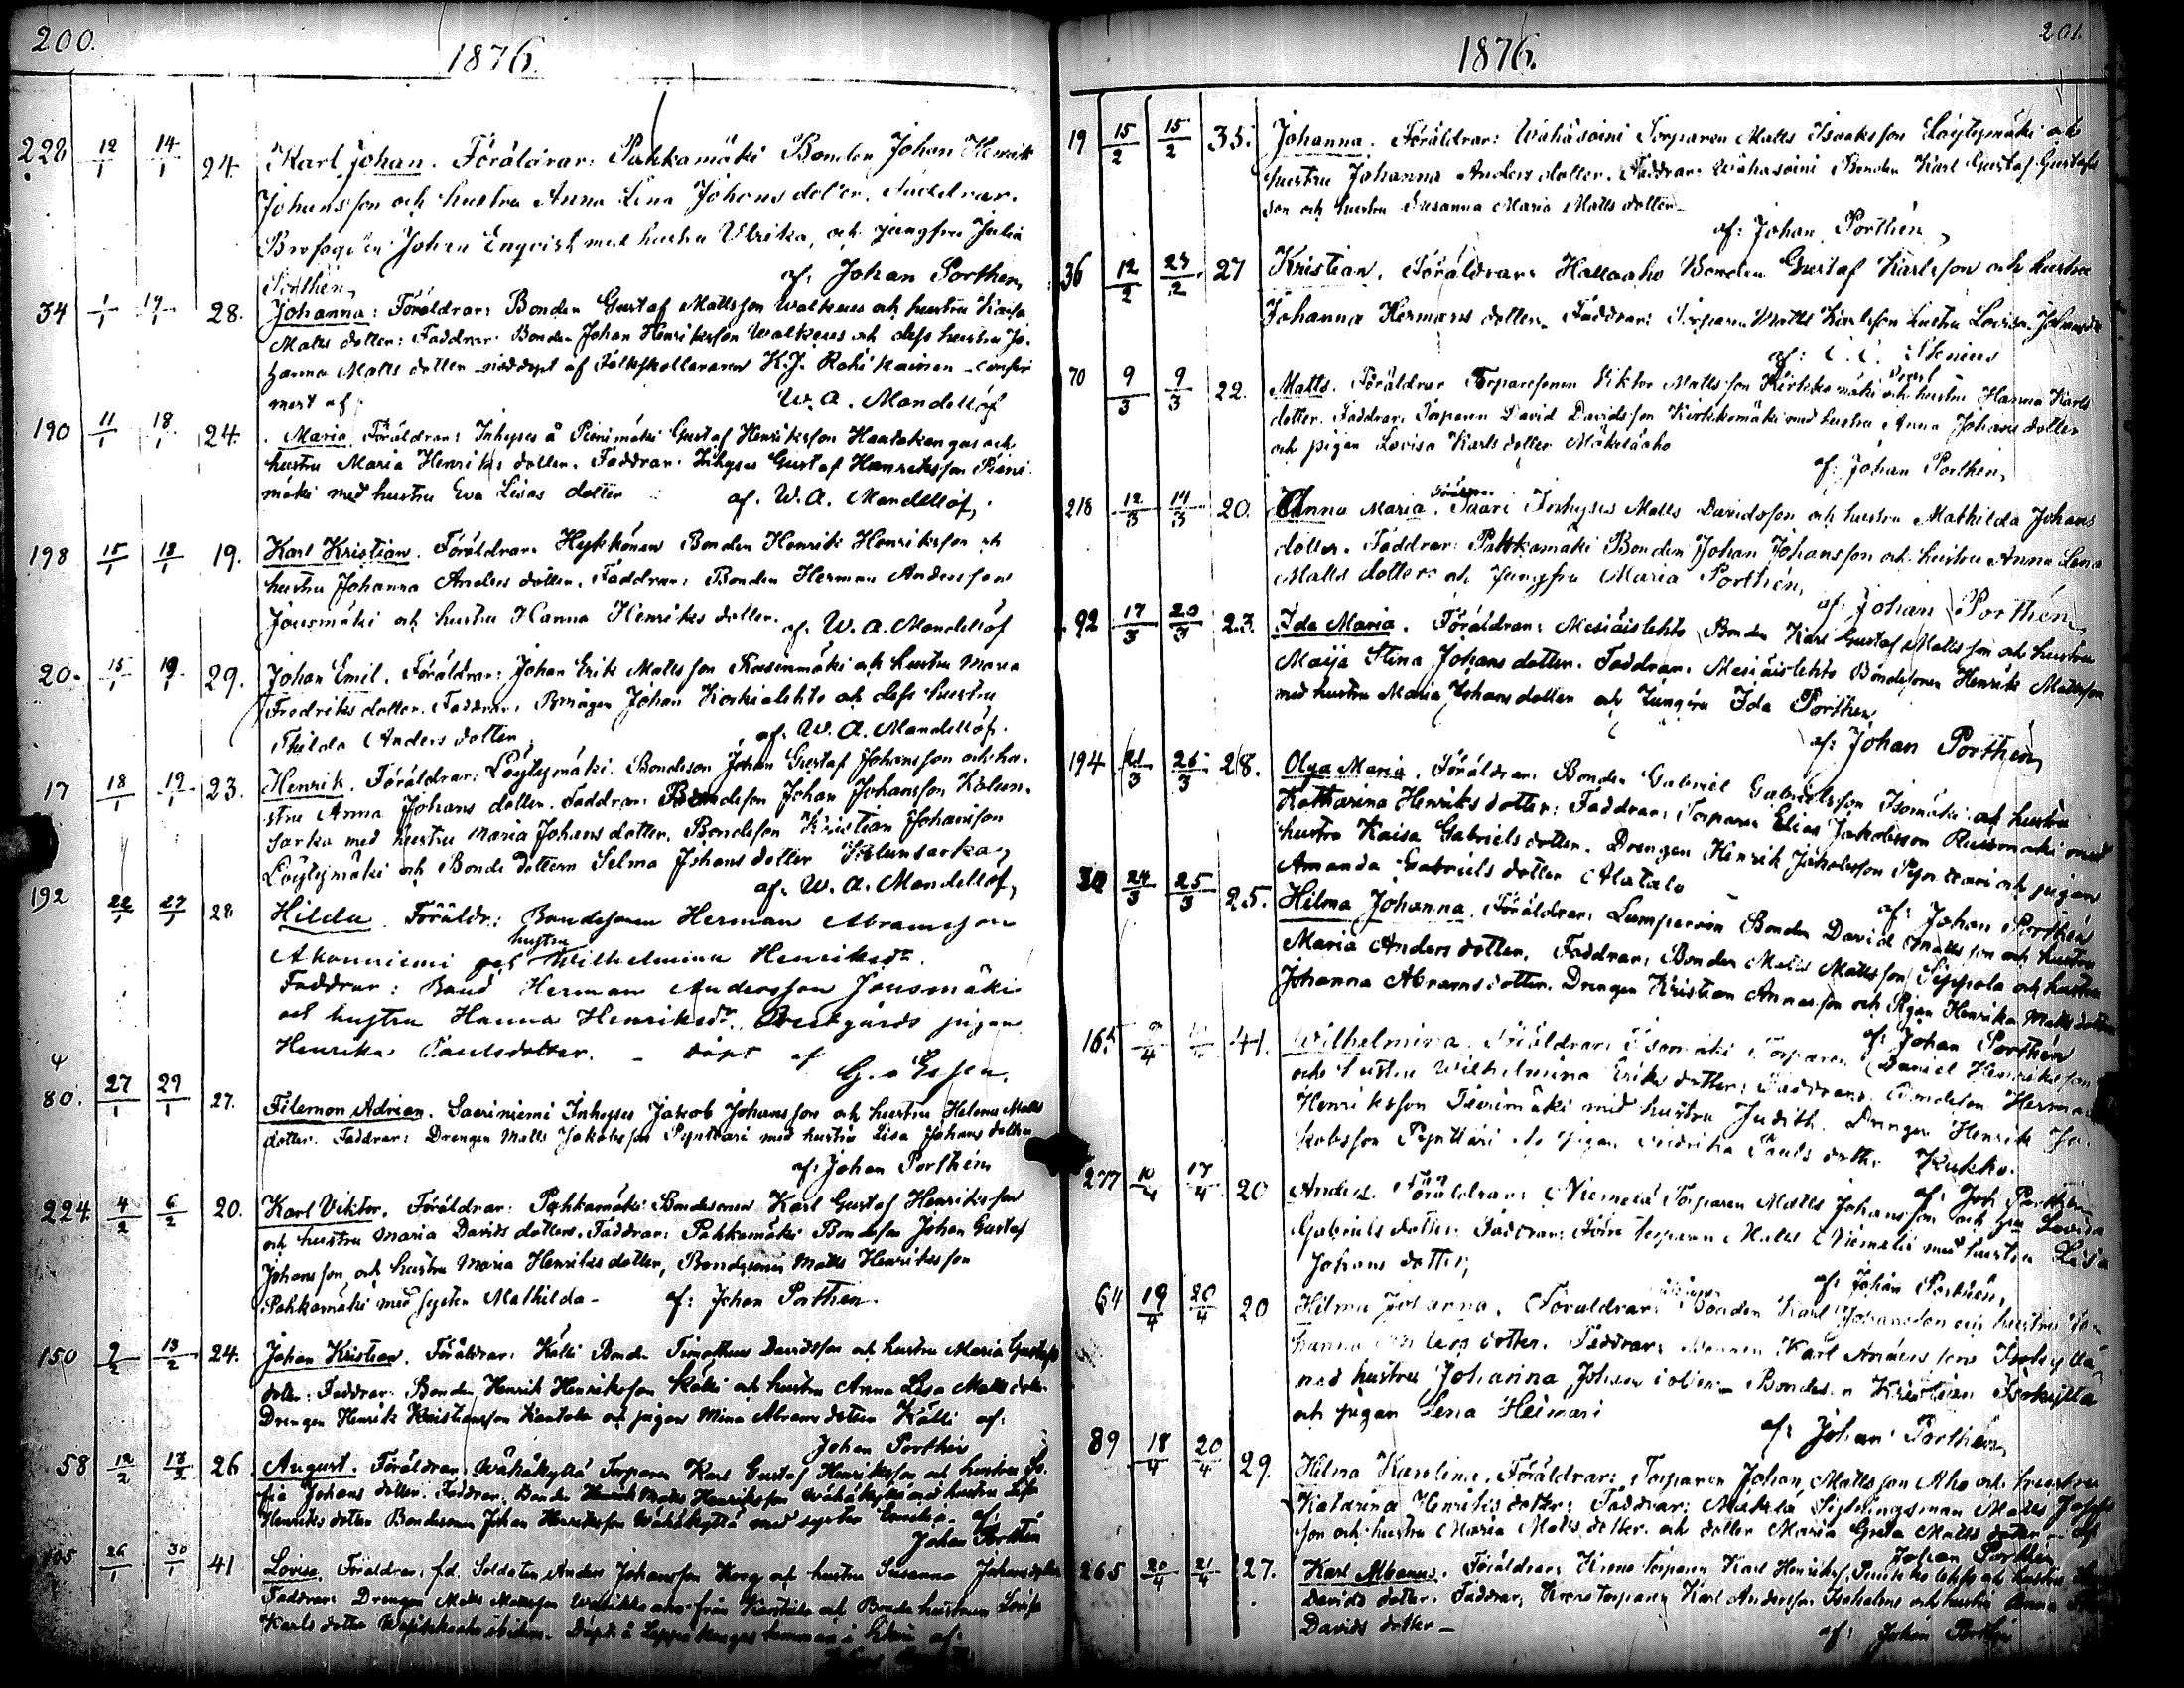 200.
1876.
228 12/1 14/1 24. Karl Johan. Föräldrar: Pahkamäki Bonden Johan Henrik
Johansson och hustru Anna Lena Johans dotter. Faddrar.
Johan Enqvist med hustru Ulrika, och jungfru Julia
Porthén, af: Johan Porthen,
34 1/1 17/1 28. Johanna: Föräldrar: Bonden Gustaf Mattsson Walkeus och hustru Kaisa
Matts dotter: Faddrar: Bonden Johan Henriksson Walkeus och dess hustru Jo-
hanna Matts dotter nöddöpt af Folkskolläraren K. J. Rahikainen - confir-
mert af W. A. Mandellöf
190 11/1 18/1 24. Maria. Föräldrar: Inhyses å Pienimäki Gustaf Henriksson Hautakangas och
hustru Maria Henriks dotter. Faddrar: Inhyses Gustaf Henriksson Pieni-
mäki med hustru Eva Lisas dotter af. W. A. Mandellöf,
198 15/1 18/1 19. Karl Kristian. Föräldrar: Hykkönen Bonden Henrik Henriksson och
hustru Johanna Anders dotter. Faddrar: Bonden Herman Andersson
Jousmäki och hustru Hanna Henriks dotter. af W. A. Mandellöf
20. 15/1 19/1 29. Johan Emil. Föräldrar: Johan Erik Matts son Rasinmäki och hustru Maria
Fredriks dotter. Faddrar: Johan Koskialehto och dess hustru
Thilda Anders dotter, af. W. A. Mandellöf.
17 18/1 19/1 23. Henrik. Föräldrar: Löytymäki. Bondeson Johan Gustaf Johansson och hu-
stru Anna Johans dotter. Faddrar: Bondeson Johan Johansson Kolun-
sarka med hustru Maria Johans dotter. Bondeson Kristian Johansson
Löytymäki och Bonde dottern Selma Johans dotter Kolunsarka,
af. W. A. Mandellöf,
192 22/1 27/1 28 Hilda. Föräldr: Bondesonen Herman Abramsson
Ahonniemi och hustru Wilhelmina Henriksdr.
Faddrar: Bond Herman Andersson Jousmäki
och hustru Hanna Henriksdr. Prestgårds pigan
Henrika Paulsdotter. - döpt af
G. v Essen.
80. 27/1 29/1 27. Filemon Adrian. Saariniemi Inhyses Jakob Johansson och hustru Helena Matts
dotter. Faddrar: Drengen Matts Jakobsson Pynttäri med hustru Lisa Johans dotter
af: Johan Porthén
224 4/2 6/2 20. Karl Viktor. Föräldrar: Pahkamäki Bondesonen Karl Gustaf Henriksson
och hustru Maria Davids dotter. Faddrar: Pahkamäki Bondeson Johan Gustaf
Johansson och hustru Maria Henriks dotter, Bondesonen Matts Henriksson
Pahkamäki med syster Mathilda - af: Johan Porthen.
150 9/2 13/2 24. Johan Kristian. Föräldrar: Källi Bonden Timotheus Davidsson och hustru Maria Gustafs
dotter: Faddrar: Bonden Henrik Henriksson Källi och hustru Anna Lisa Matts dotter
Drengen Henrik Kristiansson Kantola och pigan Mina Abrams dotter Källi af:
Johan Porthén
58 12/2 13/2 26 August. Föräldrar: Wähäkyttä Torparen Karl Gustaf Henriksson och hustru So-
fia Johans dotter. Faddrar: Bonden Matts Henriksson Wähäkyttä med hustru Lisa
Henriks dotter Bondesonen Johan Henriksson Wähäkyttä med syster Emilia. af:
Johan Porthén
105 26/1 30/1 41 Lovisa. Föräldrar: f.d. Soldaten Anders Johansson Korg och hustru Susanna Johans dotter
Faddrar: Drengen Matts Mattsson från Karstula och Bonde hustrun Lovisa
Karls dotter af:
201.
1876.
19 15/2 15/2 35. Johanna. Föräldrar: Wähäsoini Torparen Matts Isaksson Löytymäki och
hustru Johanna Anders dotter. Faddrar: Wähäsoini Bonden Karl Gustaf Gustafs
son och hustru Susanna Maria Matts dotter -
af: Johan Porthén,
36 12/2 27/2 27 Kristian. Föräldrar: Hallaaho Bonden Gustaf Karlsson och hustru
Johanna Hermans dotter. Faddrar: Torparen Matts Karlsson hustru Lovisa
70 9/3 9/3 22. Matts. Föräldrar Torparesonen Viktor Matts son Kirkkomäki och hustru Hanna Karls
dotter. Faddrar: Torparen David Davidsson Kirkkomäki med hustru Anna Johans dotter
och pigan Lovisa Karls dotter Mäkeläaho
af: Johan Porthén,
218 12/3 14/3 20. Anna Maria. Föräldrar Saari Inhyses Matts Davidsson och hustru Mathilda Johans
dotter. Faddrar: Pahkamäki Bonden Johan Johansson och hustru Anna Lena
Matts dotter och Jungfru Maria Porthén,
af: Johan Porthén,
92 17/3 20/3 23. Ida Maria. Föräldrar: Mesiäislehto Bonden Karl Gustaf Mattsson och hustru
Maija Stina Johans dotter. Faddrar: Mesiäislehto Bondesonen Henrik Mattsson
med hustru Maria Johans dotter och Jungfru Ida Porthen,
af: Johan Porthén,
194 21/3 25/3 28. Olga Maria. Föräldrar: Bonden Gabriel Gabrielsson Isomäki och hustru
Katharina Henriks dotter: Faddrar: Torparen Elias Jakobsson med
hustru Kaisa Gabriels dotter. Drengen Henrik Jakobsson Pynttäri och pigan
Amanda Gabriels dotter Alatalo
af: Johan Porthén
30 24/3 25/3 25. Hilma Johanna. Föräldrar: Lumperoin Bonden David Mattsson och hustru
Maria Anders dotter. Faddrar: Bonden Matts Mattsson Seppälä och hustru
Johanna Abrams dotter. Drengen Kristian Annasson och Pigan Henrika Matts dotter
af: Johan Porthén
165 41. Wilhelmina. Föräldrar: Isomäki Torparen Daniel Henriksson
och hustru Wilhelmina Eriks dotter: Faddrar: Bondeson Herman
Henriksson Pienimäki med hustru Judith. Drengen Henrik Ja-
kobsson Pynttäri och pigan Fredrika Pauls dotter Kukko.
af: Joh Porthén
277 10/4 17/4 20 Anders. Föräldrar: Niemelä Torparen Matts Johansson och hru Lovisa
Gabriels dotter. Faddrar: Torparen Matts Niemelä med hustru Lisa
Johans dotter,
af: Johan Porthén,
64 19/4 20/4 20 Hilma Johanna. Föräldrar: Bonden Karl Johansson och hustru Jo-
hanna dotter. Faddrar: Karl Andersson Isokyttä
med hustru Johanna Johans dotter - Bondeson Kristian Isokyttä
och pigan Lena Heimari
af: Johan Porthén,
89 18/4 20/4 29. Hilma Karolina. Föräldrar: Torparen Johan Mattsson Aho och hustru
Katarina Henriks dotter: Faddrar: Mäkelä Sytningsman Matts
son och hustru Maria Matts dotter och dotter Maria Greta Matts dotter - af
Johan Porthén
265 20/4 21/4 27. Karl Albanus. Föräldrar: Krono Torparen Karl och hustru
Davids dotter. Faddrar: Kronotorparen Karl Andersson Isoholma och hustru Anna
Davids dotter -
af: Johan Porthén